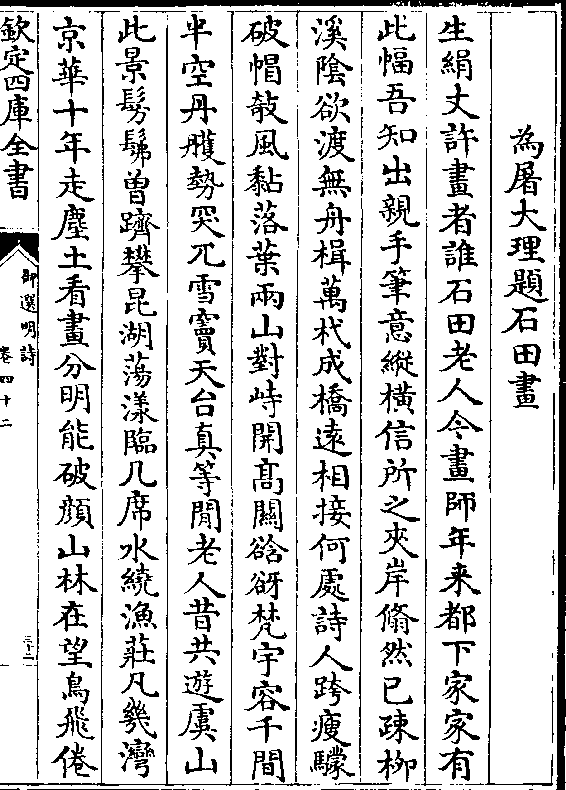 為屠大理題石田畫
生絹丈許畫者誰石田老人今畫師年来都下家家有
此幅吾知出親手筆意縱橫信所之夾岸翛然已疎柳
溪陰欲渡無舟楫萬杙成橋遠相接何處詩人跨瘦驝
破帽敧風黏落葉兩山對峙開髙關谽谺梵宇容千間
半空丹雘勢突兀雪竇天台真等閒老人昔共遊虞山
此景髣髴曽躋攀昆湖蕩漾臨几席水繞漁莊凡幾灣
京華十年走塵土看畫分明能破顔山林在望鳥飛倦
欽定四庫全書
御選明詩
卷四十二
三十二